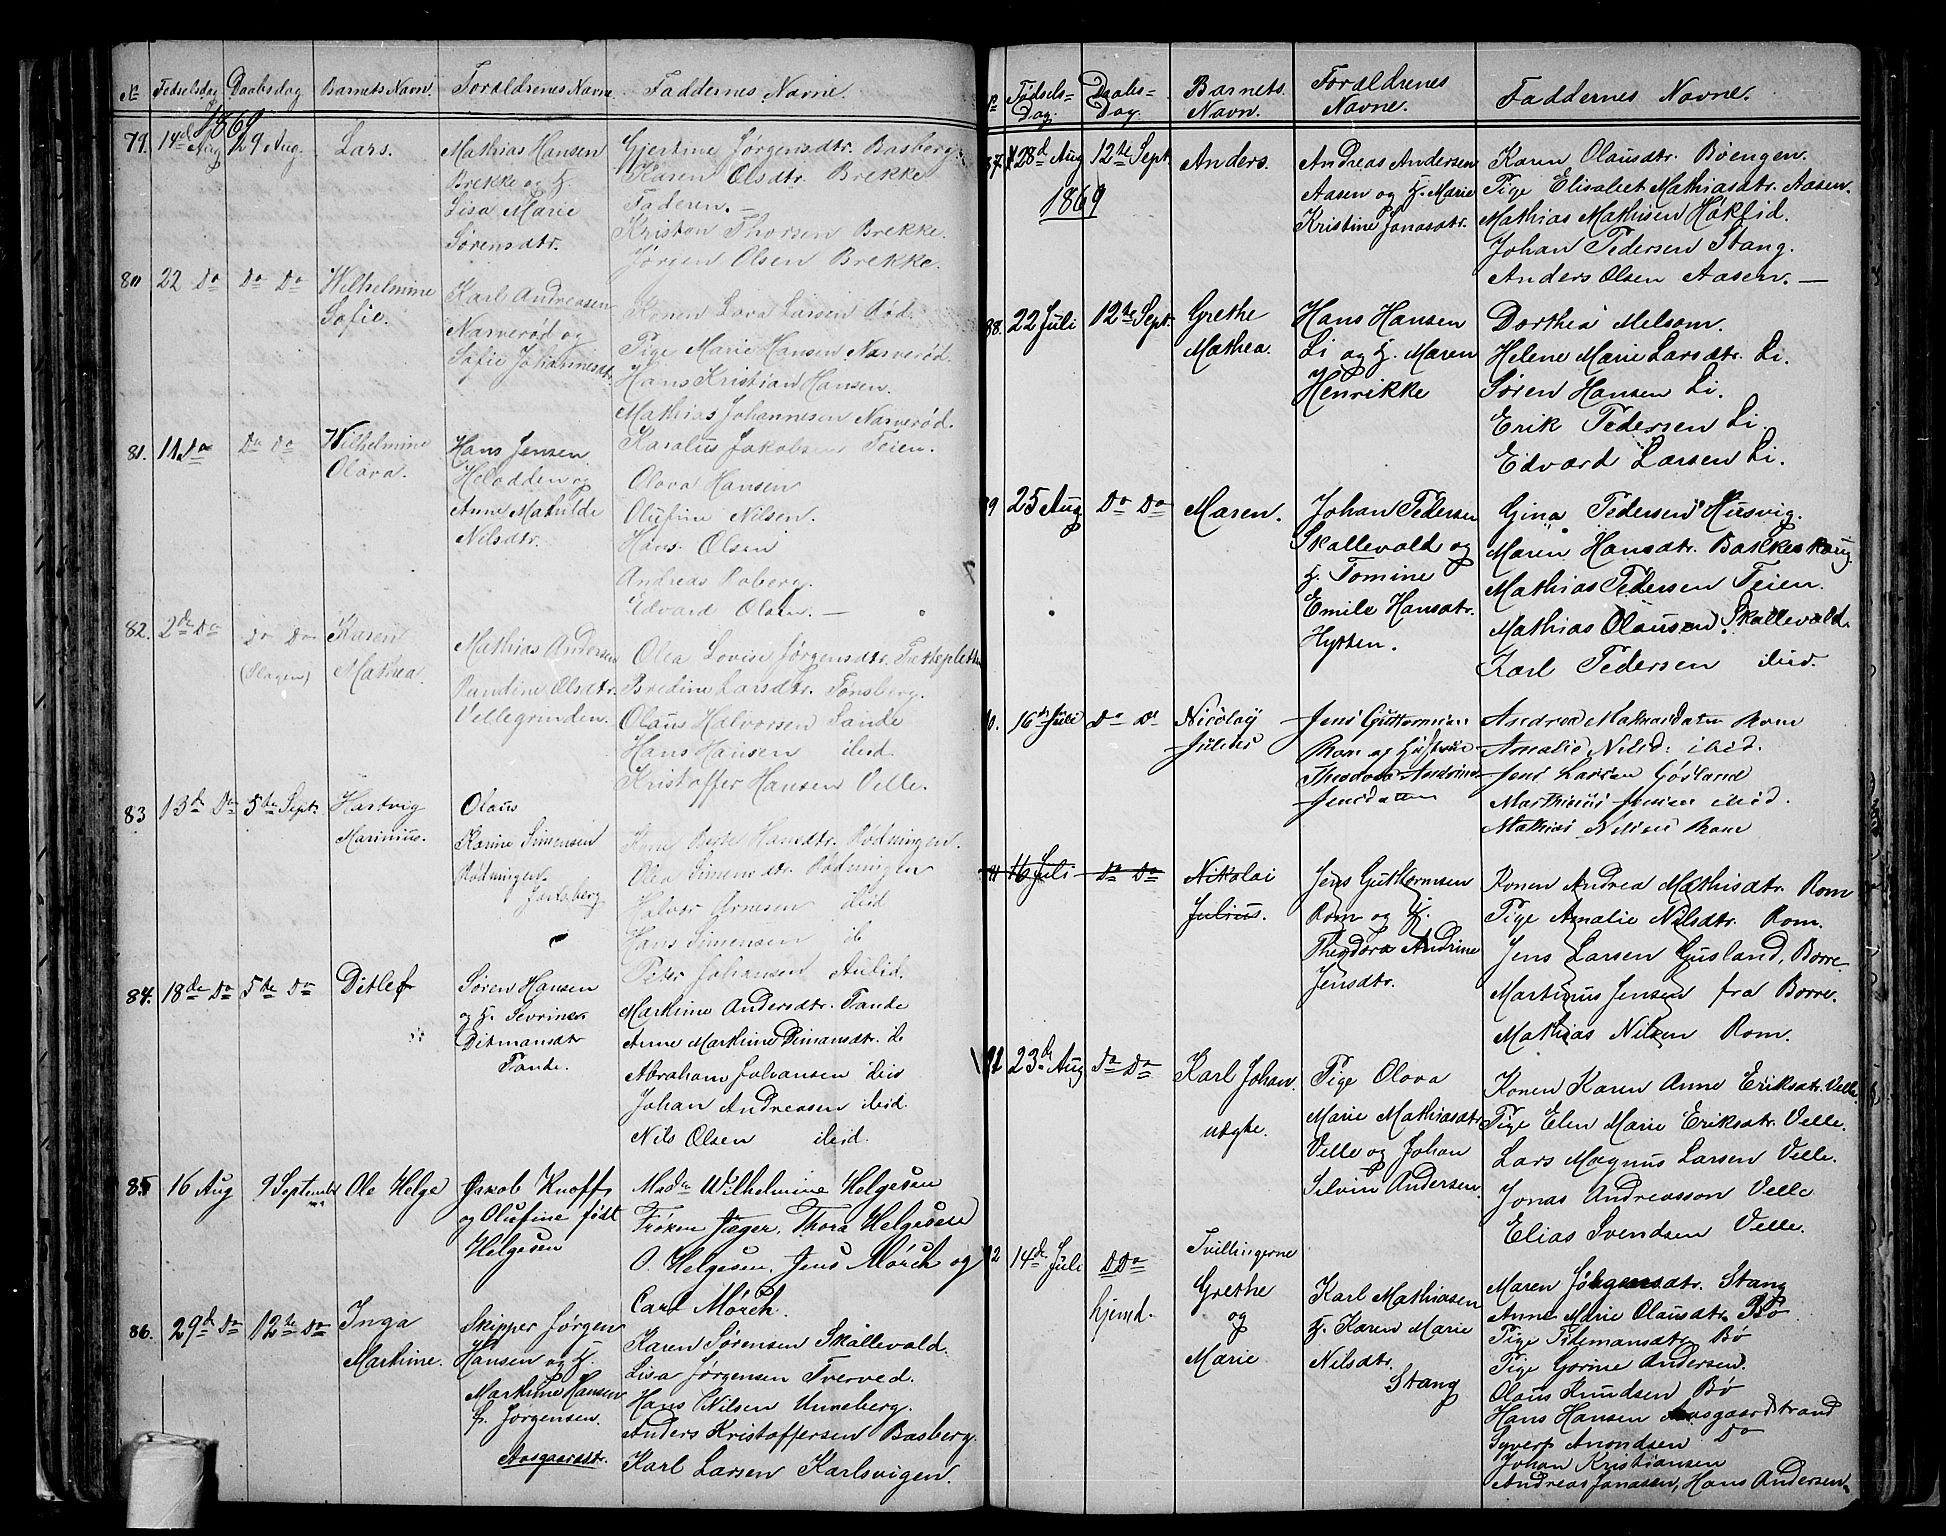 № Fødselsdag Daabsdag Barnets Navn. Forældrenes Navne. Faddernes Navne.
1869
79. 14de Aug 29 Aug. Lars.
Mathias Hansen
Brekke og H.
Lisa Marie
Sørensdtr.
Gjertine Jørgensdtr. Basberg.
Karen Olsdtr. Brekke
Faderen. —
Kristen Thorsen Brekke.
Jørgen Olsen Brekke.
80 22 Do Do Do Wilhelmine
Sofie.
Karl Andreasen
Narverød og
Sofie Johannesdtr.
Konen Lova Larsen Rød.
Pige Marie Hansen Narverød.
Hans Kristian Hansen.
Mathias Johannesen Narverød.
81. 11 Do Do Do Wilhelmine
Olava.
Hans Jensen
Helodden og
Anne Mathilde
Nilsdtr.
Karolus Jakobsen Feien.
Olava Hansen
Olufine Nilsen.
Hans Olsen
Andreas Roberg.
Edvard Olsen. —
82. 2de Do Do Do Karen
(Slagen) Mathea.
Mathias Andersen
Pandine Olsdtr.
Vellegrinden.
Olea Lovise Jørgensdtr.
Bredine Larsdtr. Tønsberg.
Olaus Halvorsen Sande
Hans Hansen ibid.
Kristoffer Hansen Velle.
83 13de Do 5te Sept. Hartvig
Marinius.
Olaus
Karine Simensen
Rødningen.
Jarlsberg
Hansdtr. Rødningen.
Olea Simensdtr. Rødningen
Halvor Arnesen ibid
Hans Simensen ib
Peter Johansen Aulid.
84. 18de Do 5te Do Ditlef
Søren Hansen
og H. Sevrine
Ditmansdtr
Tande.
Marthine Andersdtr. Tande
Anne Marthine Dimansdtr. ib
Abraham Johansen ibid
Johan Andreasen ibid.
Nils Olsen ibid.
85 16 Aug 9 September Ole Helge
Jakob Knoff
og Olufine født
Helgesen
Mad Wilhelmine Helgesen
Frøken Jæger, Thora Helgesen
O. Helgesen, Jens Mørch og
Carl Mørch.
86. 29de Do 12te Do Inga
Marthine.
Skipper Jørgen
Hansen og H.
Marthine Hansen
f. Jørgensen.
Aasgaardstr.
Karen Sørensen Skallevald.
Lisa Jørgensen Tverved.
Hans Nilsen Unneberg.
Anders Kristoffersen Basberg.
Karl Larsen Karlsvigen.
№ Fødsels-
Dag. Daabs-
Dag. Barnets
Navn. Forældrenes
Navne. Faddernes Navne.
87. 28de Aug 12te Sept. Anders.
1869
Andreas Andersen
Aasen og H. Marie
Kristine Jonasdtr.
Karen Olausdtr. Bøengen.
Pige Elisabet Mathiasdtr. Aasen.
Mathias Mathisen Høklid.
Johan Pedersen Stang.
Anders Olsen Aasen. —
88. 22 Juli 12te Sept. Grethe
Mathea.
Hans Hansen
Li og H. Maren
Henrikke
Dorthea Melsom.
Helene Marie Larsdtr. Li.
Søren Hansen Li.
Erik Pedersen Li
Edvard Larsen Li.
89 25 Aug Do Do Maren.
Johan Pedersen
Skallevald og
H. Tomine
Emile Hansdtr.
Hytten.
Gina Pedersen Husvig.
Maren Hansdtr. Bakkeskaug.
Mathias Pedersen Feien.
Mathias Olausen Skallevald.
Karl Pedersen ibid.
90. 16de Juli Do Do Nicolay
Julius
Jens Guttormsen
Rom og Hustrue
Theodora Andrine
Jensdatter
Andrea Mathiasdatter Rom
Amalie Nilsd. ibid.
Jens Larsen Gusland
Marthinus Jensen ibid.
Mathias Nilsen Rom
91 16 Juli Do Do Nikolai
Julius.
Jens Guttormsen
Rom og H.
Theodora Andrine
Jensdtr.
Konen Andrea Mathisdtr. Rom
Pige Amalie Nilsdtr. Rom.
Jens Larsen Gusland, Borre.
Martinus Jensen fra Borre.
Mathias Nilsen Rom.
91 23de Aug Do Do Karl Johan.
uægte.
Pige Olava
Marie Mathiasdtr.
Velle og Johan
Silvin Andersen.
Konen Karen Anne Eriksdtr. Velle.
Pige Elen Marie Eriksdtr. Velle.
Lars Magnus Larsen Velle.
Jonas Andreasson Velle
Elias Svendsen Velle.
92 14de Juli Do Do
hjemd. Tvillingerne
Grethe
og
Marie
Karl Mathiasen
H. Karen Marie
Nilsdtr.
Stang
Maren Jørgensdtr. Stang
Anne Marie Olausdtr. Bø
Pige Tidemansdtr. Bø
Pige Gorine Andersen.
Olaus Knudsen Bø
Hans Hansen Aasgaardstrand
Syvert Anondsen Do
Johan Kristiansen
Andreas Jonasen, Hans Andersen